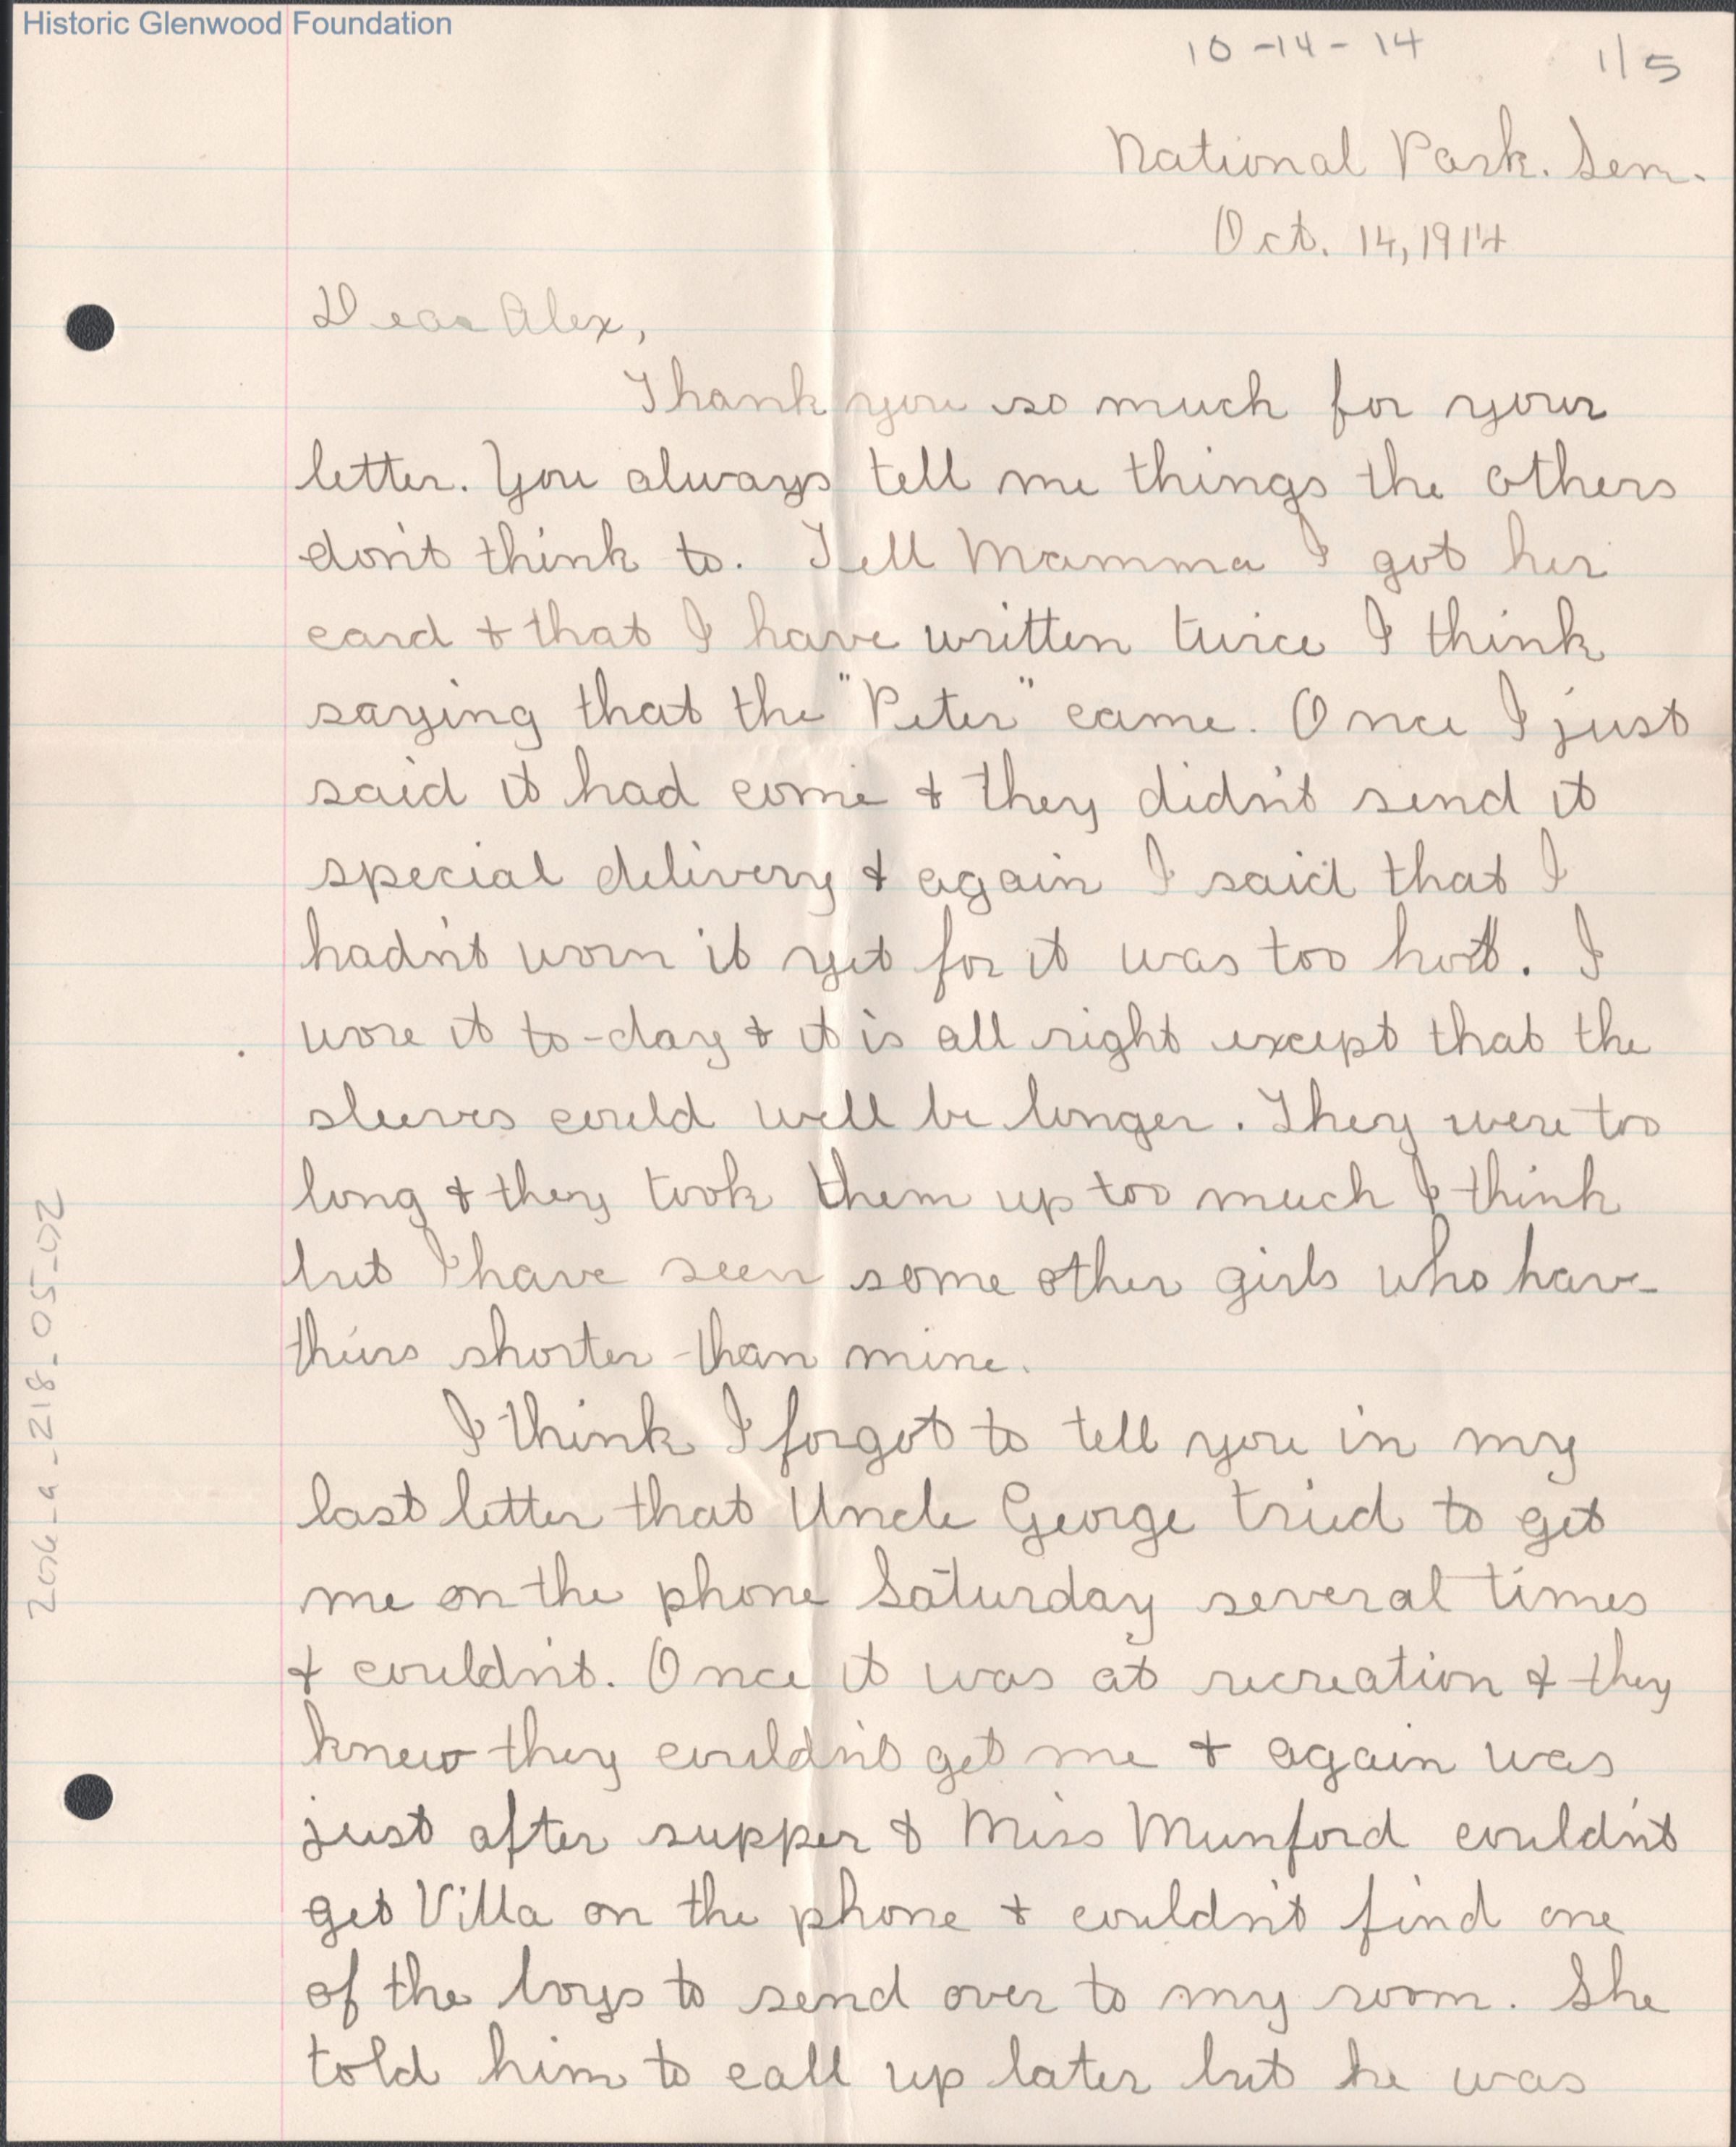 Historic Glenwood Foundation
10-14-14 1/5
National Park. Sem.
Oct. 14, 1914
Dear Alex,
Thank you so much for your
letter. You always tell me things the others
don't think to. Tell Mamma I got her
card + that I have written twice I think
saying that the "Peter" came. Once I just
said it had come + they didn't send it
special delivery + again I said that I
hadn't worn it yet for it was too hot. I
wore it to-day + it is all right except that the
sleeves could well be longer. They were too
long + they took them up too much I think
but I have seen some other girls who have
theirs shorter than mine.
I think I forgot to tell you in my
last letter that Uncle George tried to get
me on the phone Saturday several times
+ couldn't. Once it was at recreation + they
knew they couldn't get me + again was
just after supper + Miss Munford couldn't
get Villa on the phone + couldn't find one
of the boys to send over to my room. She
told him to call up later but he was
2016-a-218-05-02